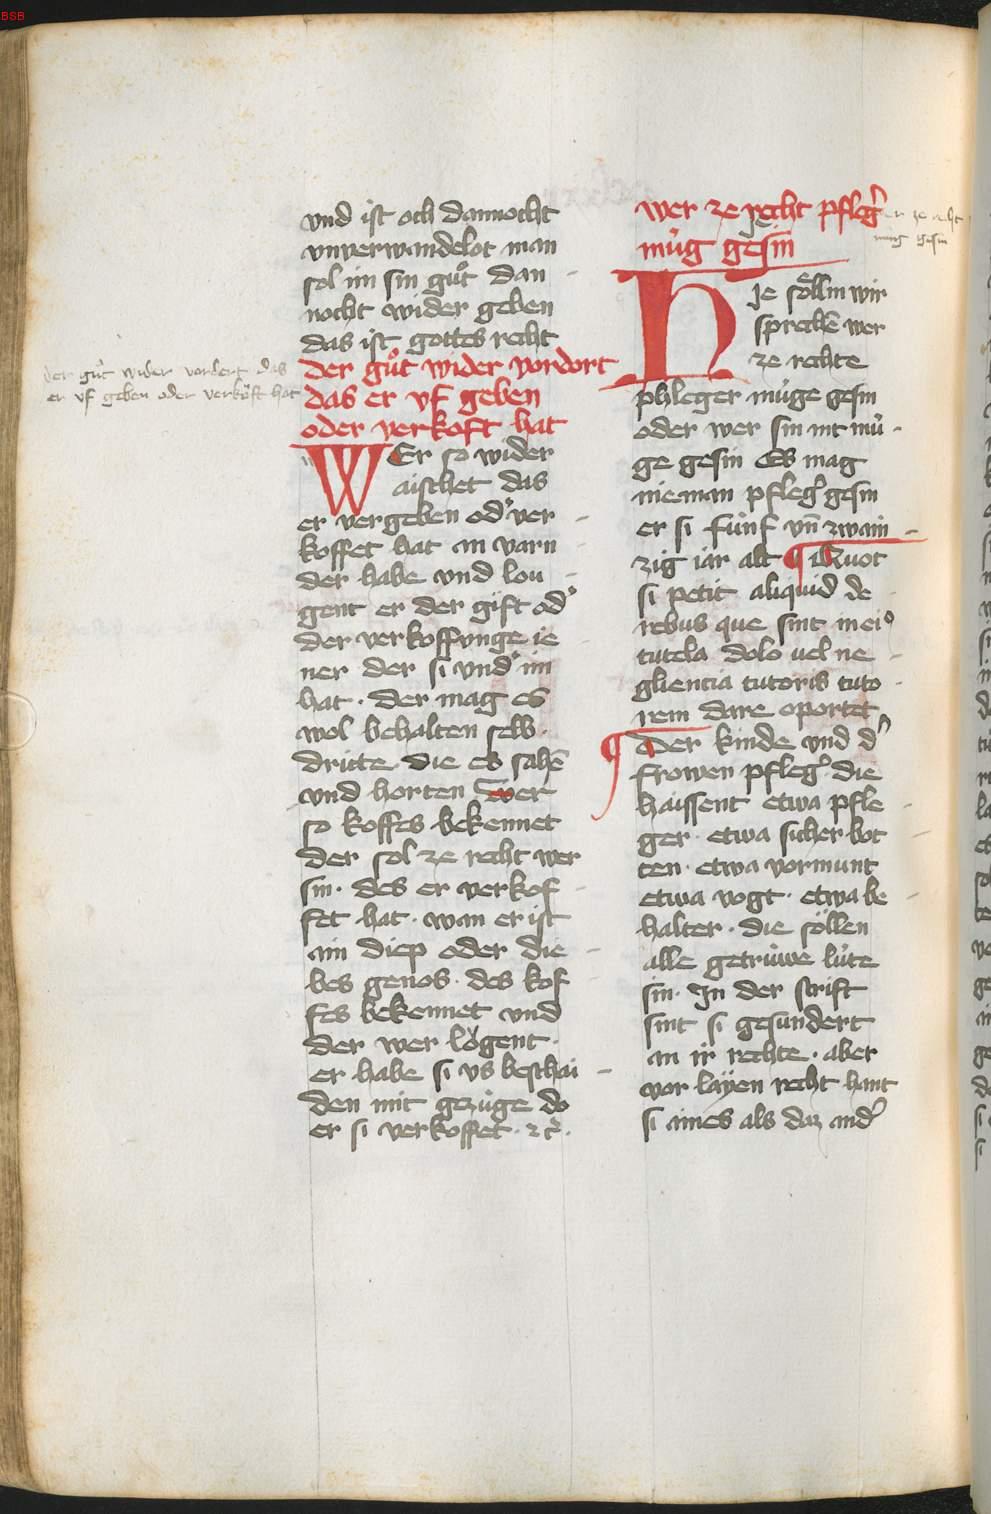 vnd ist och dannocht
vnuerwandelot man
sol im sin guͦt dan
nocht wider geben
das ist gottes recht
der guͦt wider vordort
das er vf geben
oder verkoft hat
der guͦt wider vordert das
er vf geben oder verkoͮft hat
WEr so wider
aischet das
er vergeben od' ver
koffet hat an varn
der habe vnd lou
gent er der gift od'
der verkoffvnge ie
ner der si vnd' im
hat · der mag es
wol behalten selb
dritte die es sahē
vnd horten Wer
so koffes bekennet
der sol ze recht wer
sin · des er verkof
fet hat · wan er ist
ain diep oder die
bes genos · des kof
fes bekennet vnd
der wer loͮgent ·
er habe si vs beschai
den mit gezuͤge do
er si verkoffet · ⁊c̄ ·
wer ze recht pfleg'
muͤg gesin
er ze recht
mug gesin
HJe soͤllin wir
sprechē wer
ze rechte
phleger muͤge gesin
oder wer sin nit muͤ
ge gesin Es mag
nieman pfleg' gesin
er si fuͤnf vn̄ zwain
zig iar alt ¶ Quot
si petit aliquid de
rebus que sint in ei9
tutela dolo uel ne
gliencia tutoris tuto
rem dare oportet
¶ Der kinde vnd d'
frowen pfleg' die
haissent etwa pfle
ger · etwa sicher bot
ten · etwa vormunt
etwa vogt · etwa be
halter · die soͤllen
alle getruͤwe luͤte
sin · Jn der scrift
sint si gesundert
an ir rechte · aber
vor laÿen recht hant
si aines als daz and'